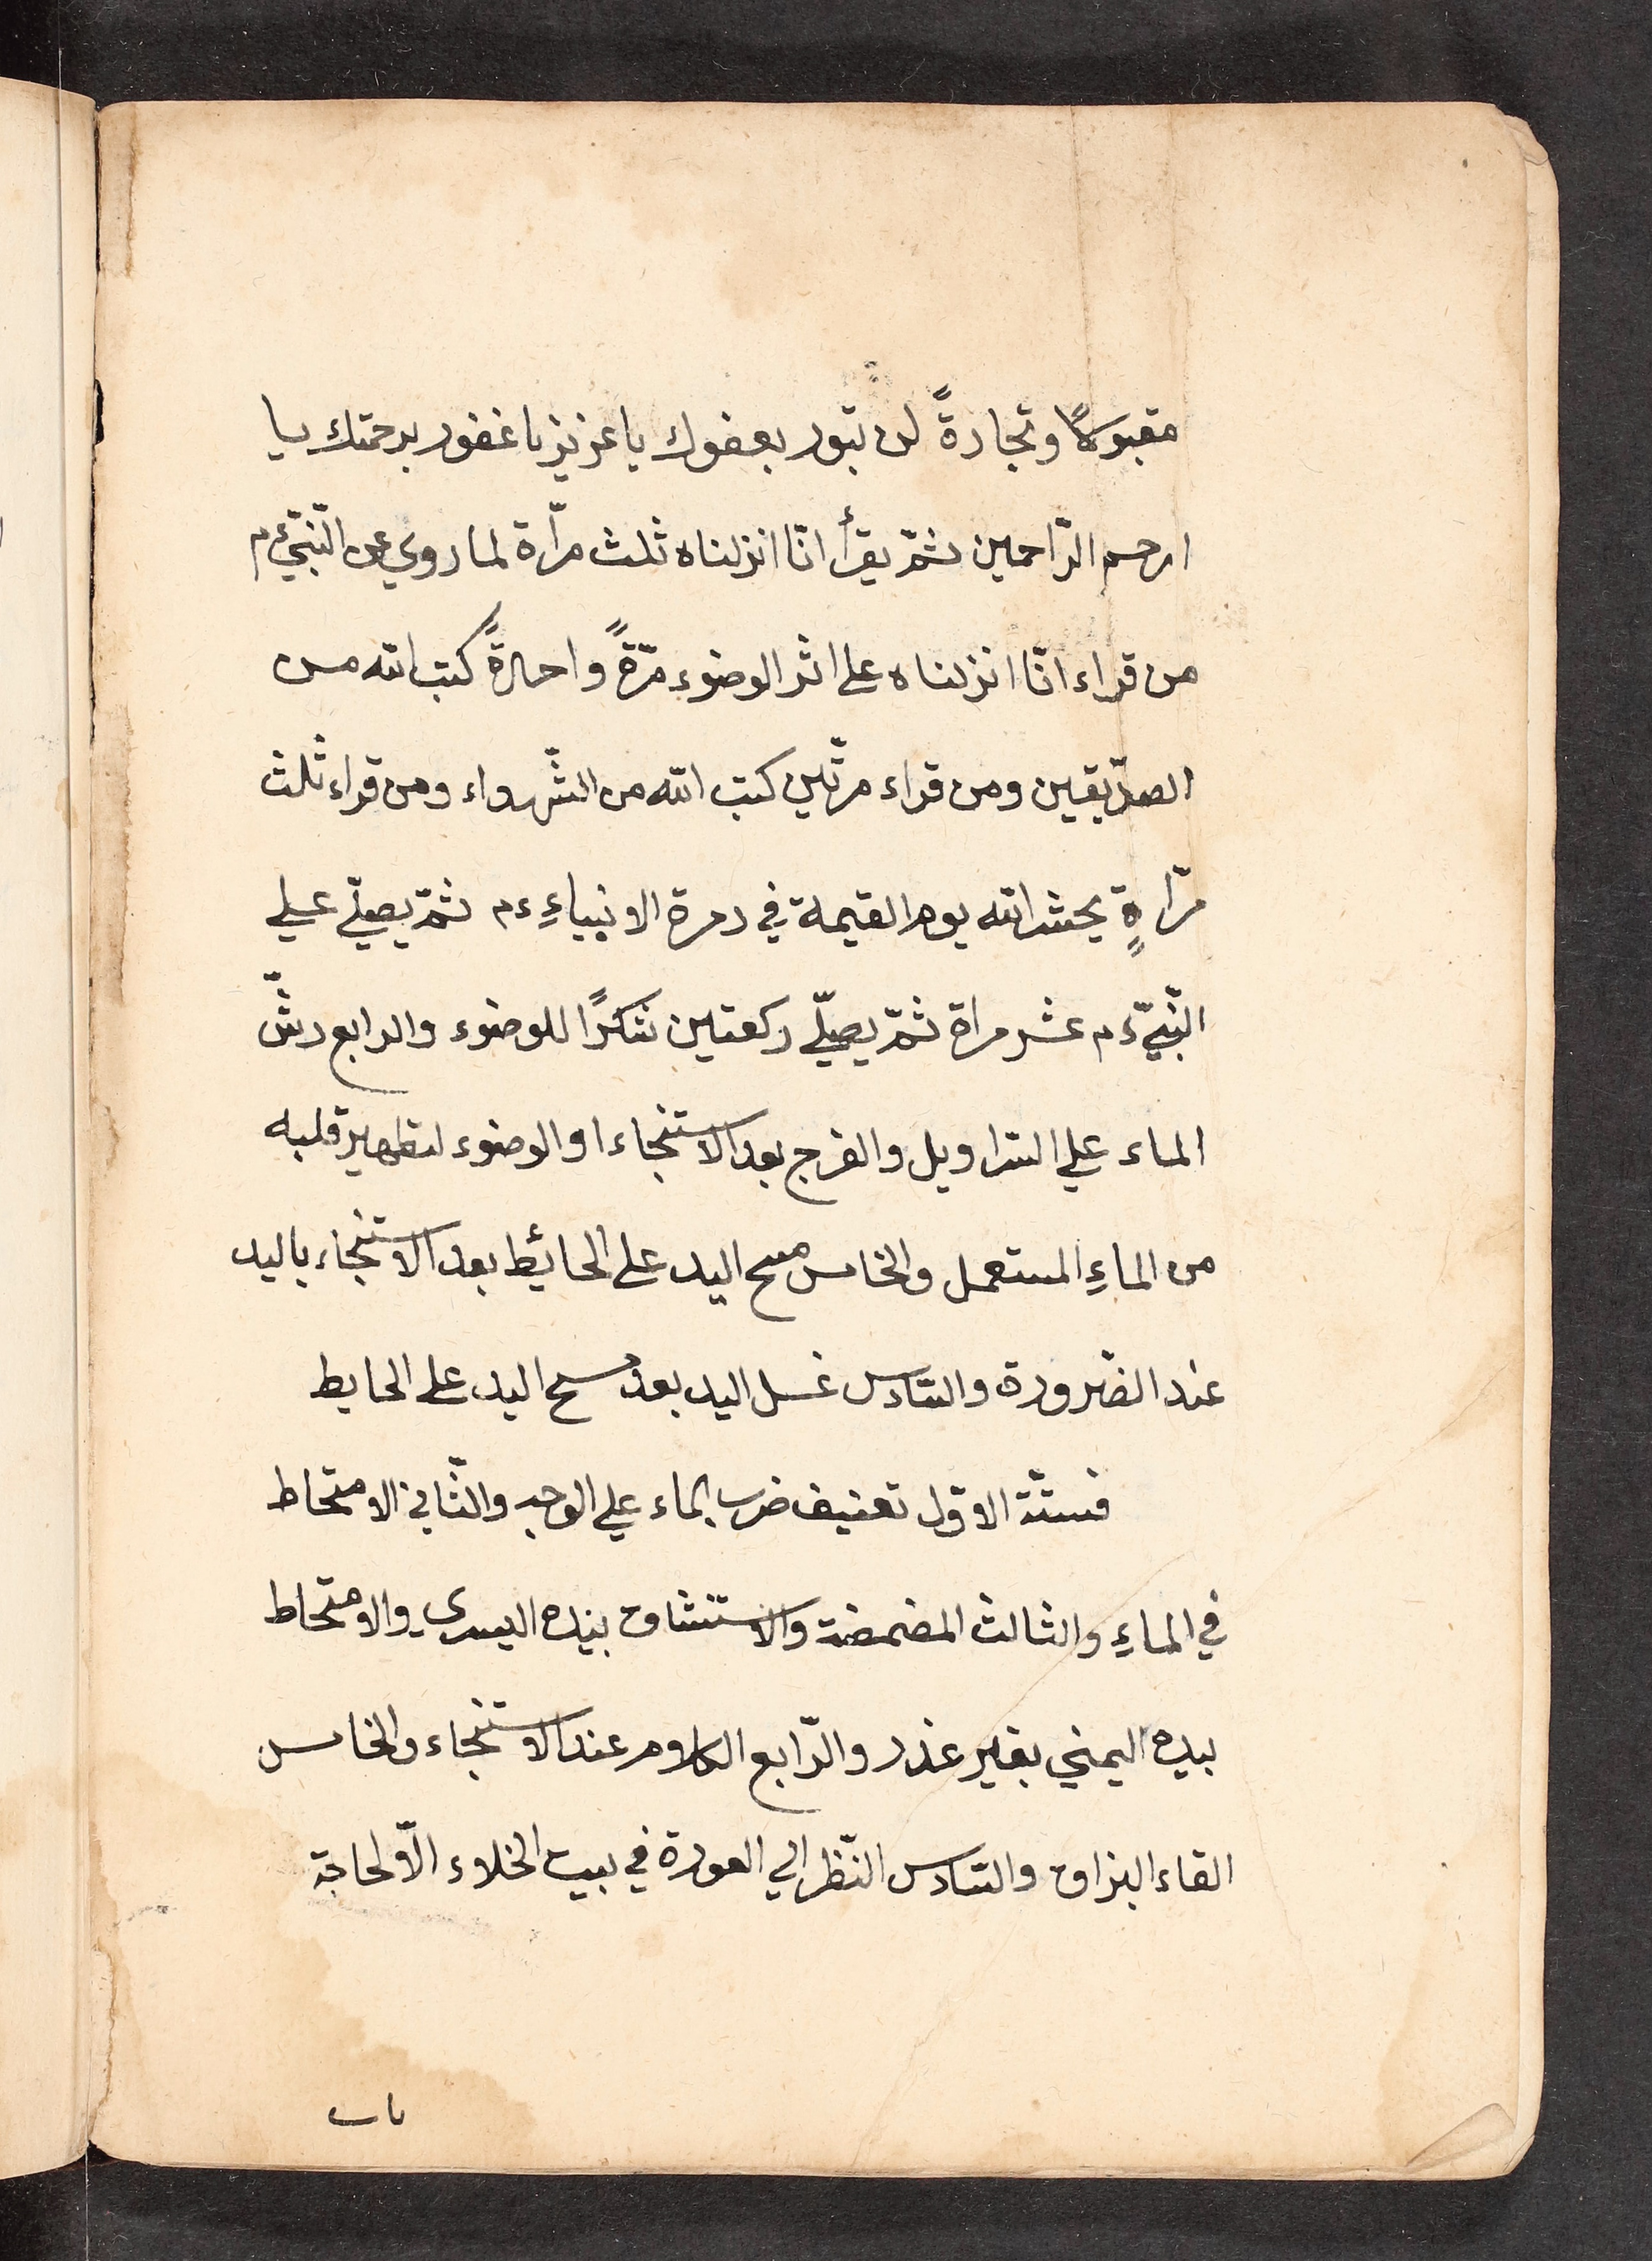 مقبولاً وتجارةً لن تبور بعفوك يا عزيز يا غفور برحمتك يا
ارحم الرّاحمين ثمّ يقرأ انّا انزلناه ثلث مرّاة لما روي عن النّبيّ ءم
من قراء انّا انزلناه على اثر الوضوء مرّةً واحدةً كتب الله من
الصدّيقين ومن قراء مرتّين كتب الله من الشّهداء ومن قراء ثلث
مرّاةٍ يحشر الله يوم القيمة في زمرة الانبياءِ ءم ثمّ يصلّي علي
النّبيّ ءم عشر مراة ثمّ يصلّي ركعتين شكرًا للوضوء والرابع رشّ
الماء علي السّراويل والفرج بعد الاستنجاء او الوضوء لتطهير قلبه
من الماءِ المستعمل والخامس مسح اليد على الحائط بعد الاستنجاء باليد
عند الضّرورة والسّادس غسل اليد بعد مسح اليد على الحايط
فستّة الاوّل تعنيف ضرب الماء علي الوجه والثّاني الامتخاط
في الماءِ والثالث المضمضة والاستنشاق بيده اليسرى والامتخاط
بيده اليمني بغير عذر والرّابع الكلام عند الاستنجاء والخامس
القاء البزاق والسّادس النّظر الي العورة في بيت الخلاء الّا لحاجة
باب